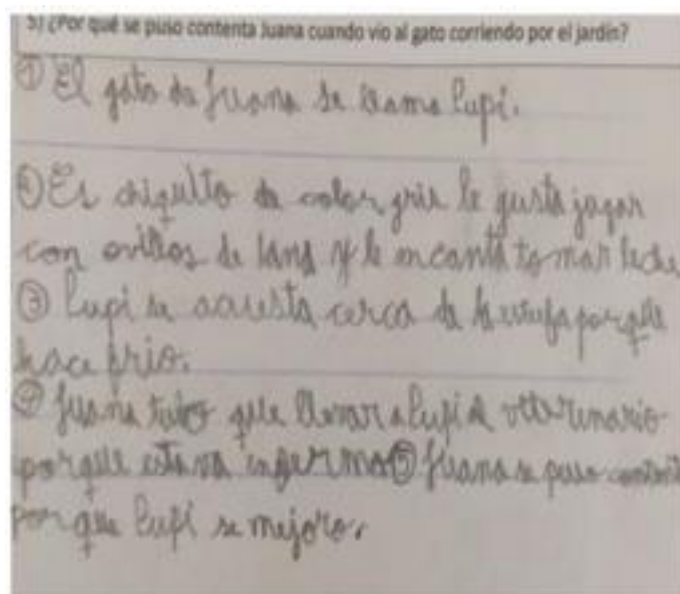 5) ¿Por qué se puso contenta Juana cuando vio al gato corriendo por el jardín?
① El gato de Juana se llama Lupi.
② Es chiquito de color gris le gusta jugar
con ovillos de lana y le encanta tomar leche
③ Lupi se acuesta cerca de la estufa porque
hace frio.
④ Juana tubo que llevar a Lupi a veterinario
porque estava enfermo ⑤ Juana se puso content
porque Lupi se mejoro.